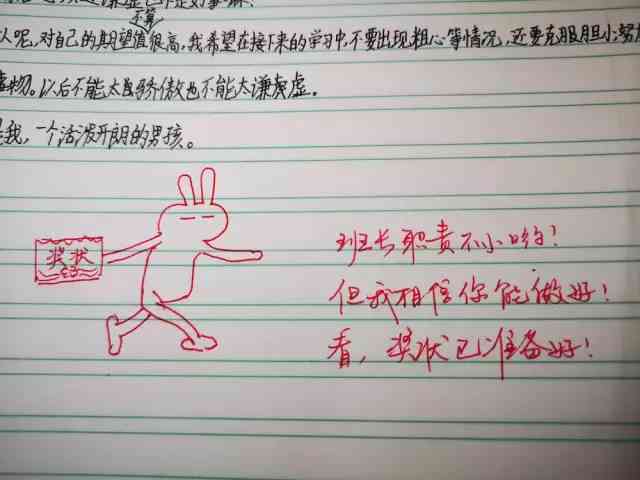 不算
人呢,对自己的期望值很高,我希望在接下来的学习中,不要出现粗心等情况,还要克服胆小努
事物。以后不能太过骄傲也不能太谦虚。
是我,一个活泼开朗的男孩。
奖状
班长职责不小哟!
但我相信你能做好!
看,奖状已准备好!